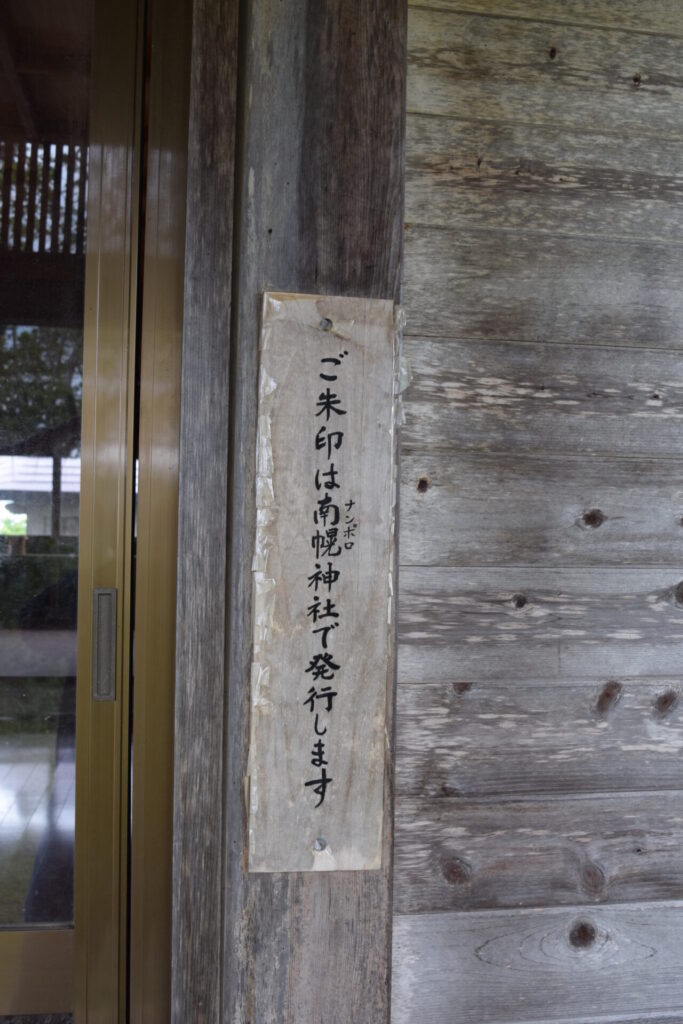 ご朱印は南幌神社で発行します
ナンポロ